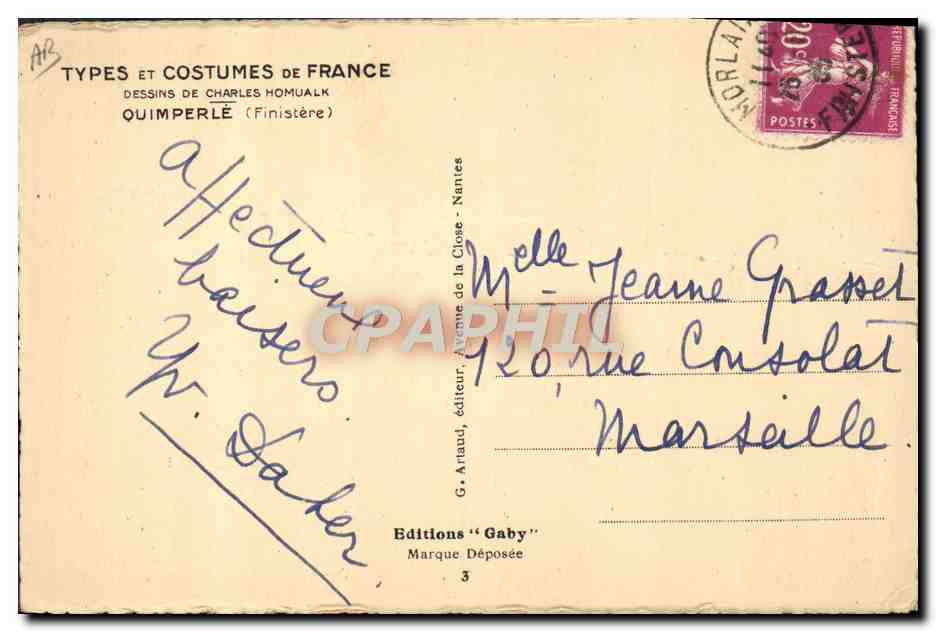 AB
TYPES ET COSTUMES DE FRANCE
DESSINS DE CHARLES HOMUALK
QUIMPERLÉ (Finistère)
affectueux
baisers
Yv. Daher
G. Artaud, éditeur, Avenue de la Close - Nantes
MORLAIX
FINISTÈRE
20c
POSTES
REPUBLIQUE FRANÇAISE
Melle Jeanne Grasset
120, rue Consolat
Marseille.
CPAPHIL
Editions "Gaby"
Marque Déposée
3